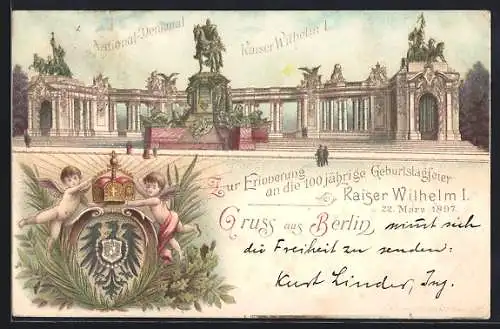 National-Denkmal Kaiser Wilhelm I.
Zur Erinnerung
an die 100jährige Geburtstagfeier
Kaiser Wilhelm I.
22. März 1897.
Gruss aus Berlin nimt sich
die Freiheit zu senden:
Kurt Linder, Ing.